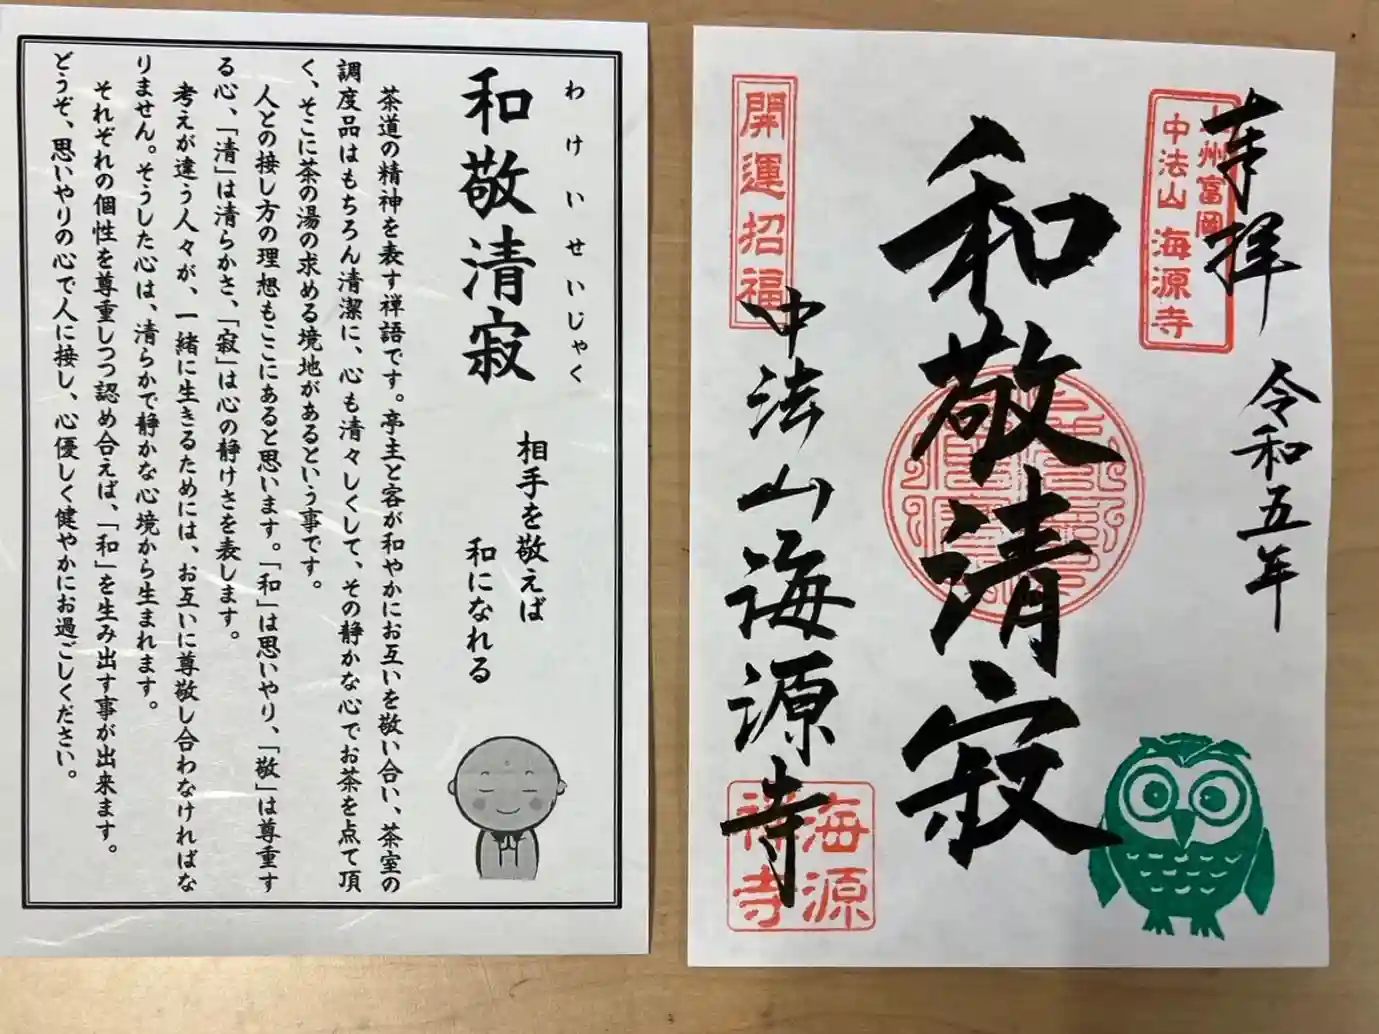 わけいせいじゃく
和敬清寂
相手を敬えば
和になれる
茶道の精神を表す禅語です。亭主と客が和やかにお互いを敬い合い、茶室の
調度品はもちろん清潔に、心も清々しくして、その静かな心でお茶を点て頂
く、そこに茶の湯の求める境地があるという事です。
人との接し方の理想もここにあると思います。「和」は思いやり、「敬」は尊重す
る心、「清」は清らかさ、「寂」は心の静けさを表します。
考えが違う人々が、一緒に生きるためには、お互いに尊敬し合わなければな
りません。そうした心は、清らかで静かな心境から生まれます。
それぞれの個性を尊重しつつ認め合えば、「和」を生み出す事が出来ます。
どうぞ、思いやりの心で人に接し、心優しく健やかにお過ごしください。
奉拝
令和五年
州富岡
中法山
海源寺
和敬清寂
開運招福
中法山海源寺
海源
禅寺